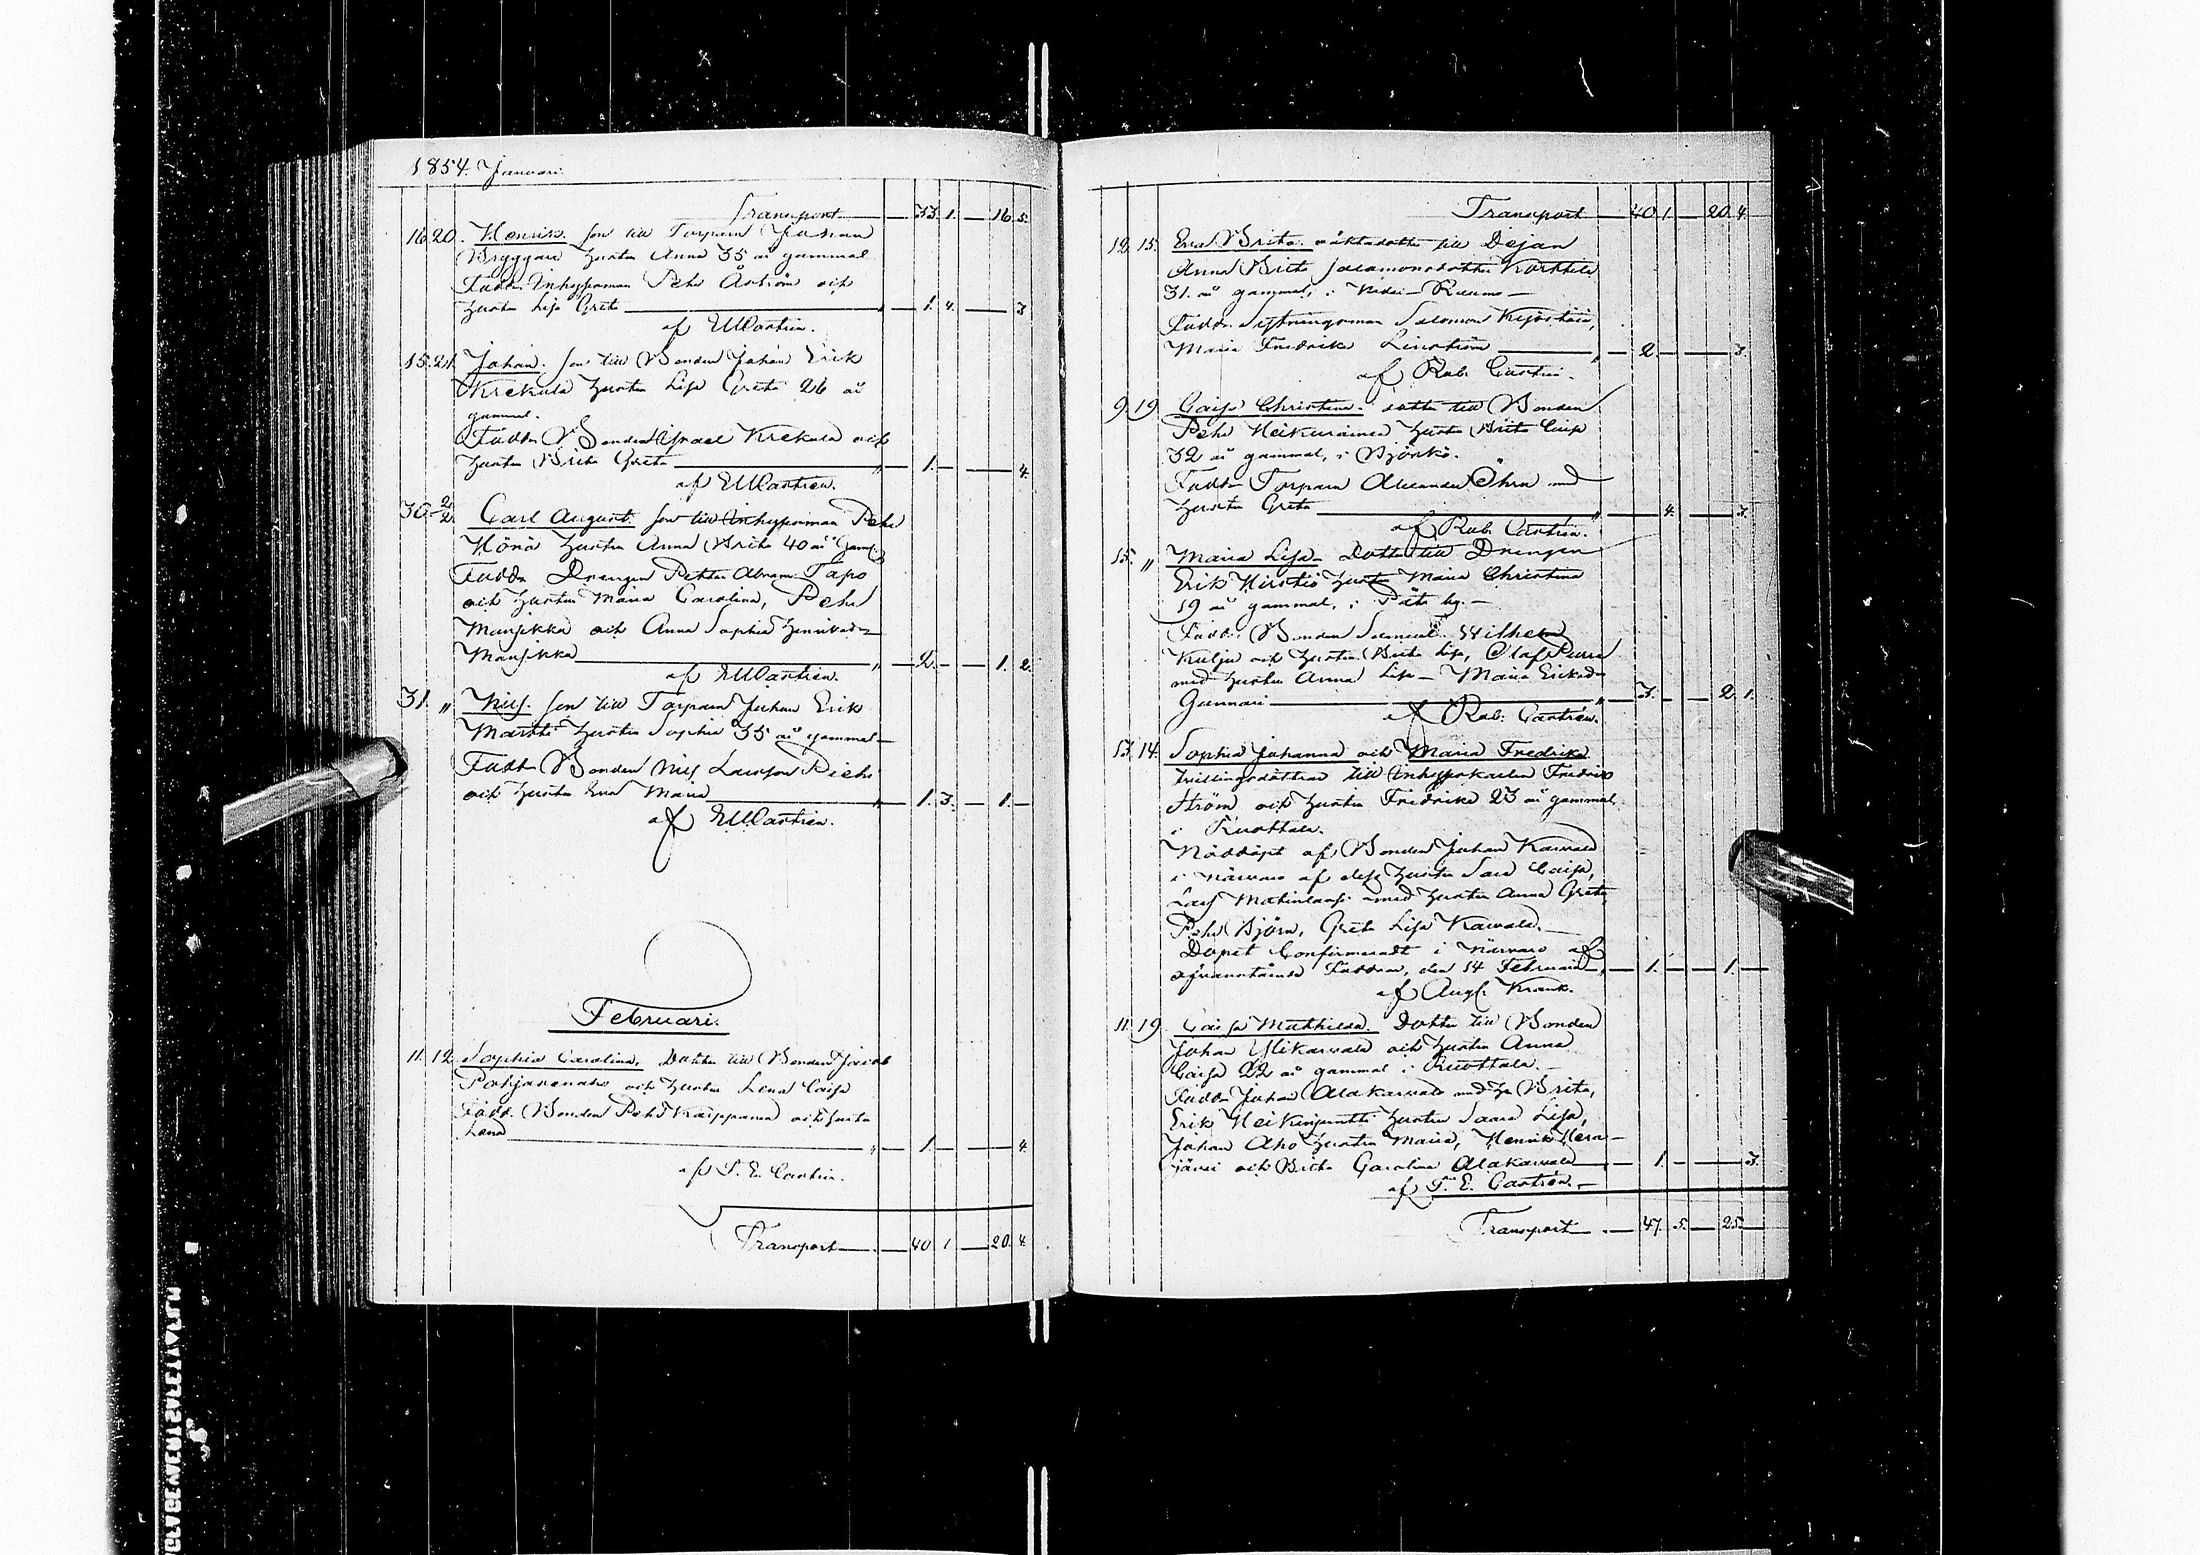 1854. Januari.
Transport 33. 1. 16. 5.
16. 20. Henrik. son till Torparn Johan
Bryggare hustru Anna 35 år gammal
Faddr. Inhysesman Pehr Åström och
hustru Lisa Greta 1. 4. 3
af EMCastrén.
15. 21. Johan. son till Bonden Johan Erik
Krekula hustru Lisa Greta 26 år
gammal.
Faddr. Bonden Israel Krekula och
hustru Brita Greta 1. 4.
af EMCastrén.
30. 2/2. Carl August. son till Inhysesman Pehr
hustru Anna Brita 40 år gaml.
Faddr. Drengen Petter Abram Tapo
och hustru Maria Carolina, Pehr
Mansikka och Anna Sophia Henriksdr
Mansikka 2. 1. 2.
af EMCastrén.
31. " Nils. son till Torparn Johan Erik
Martti hustru Sophia 35 år gammal
Faddr Bonden Nils Larsson
och hustru Eva Maria 1. 3. 1.
af EMCastrén.
Februari.
11. 12. Sophia Carolina. Dotter till Bonden Jacob
Pohjaranaho och hustru Lena Caisa
Faddr. Bonden Pehr Kaippanen och hustru
Lena 1. 4.
af F. E. Castrén.
Transport 40 1 20. 4.
Transport 40. 1. 20. 4.
12. 15. Eva Brita. oäktadotter till Pejan
Anna Brita Salamonsdotter
31. år gammal, i Raumo
Faddr. Sytningsman Salomon
Maria Fredrika 2. 3.
af Rob. Castrén.
9. 19. Caisa Christina. dotter till Bonden
Pehr Heikurainen hustru Brita Caisa
32 år gammal, i Björkö.
Faddr Torparn Alexander Öhrn med
hustru Greta 4. 3.
af Rob. Castrén.
15. " Maria Lisa. Dotter till Drengen
Erik Hirstiö hustru Maria Christina
19 år gammal, i
Faddr. Bonden Samuel Wilhelm
Kulju och hustru Brita Lisa, Olaf
med hustru Anna Lisa Maria Ericksdr
Gunnari 3. 2. 1.
af Rob. Castrén.
13. 14. Sophia Johanna och Maria Fredrika
tvillingsdöttrar till Inhysekarlen Fredrik
Ström och hustru Fredrika 23 år gammal,
i Ruottala.
Nöddöpt af Bonden Johan Karvala
i närvaro af dess hustru Sara Caisa,
Lars Matinlassi med hustru Anna Greta
Pehr Björn, Greta Lisa Karvala.
Dopet Confirmeradt i närvaro af
ofvanstående Faddrar, den 14 Februari 1. 1.
af Aug. Krank.
11. 19. Caisa Mathilda. Dotter till Bonden
Johan Ylikarvala och hustru Anna
Caisa 22 år gammal i Ruottala.
Faddr Johan Alakarvala med hu Brita,
Erik Heikinjuntti hustru Sara Lisa,
Johan Aho hustru Maria, Henrik Hera-
järvi och Brita Carolina Alakarvala 1. 3.
af F. E. Castrén.
Transport 47. 5. 25.